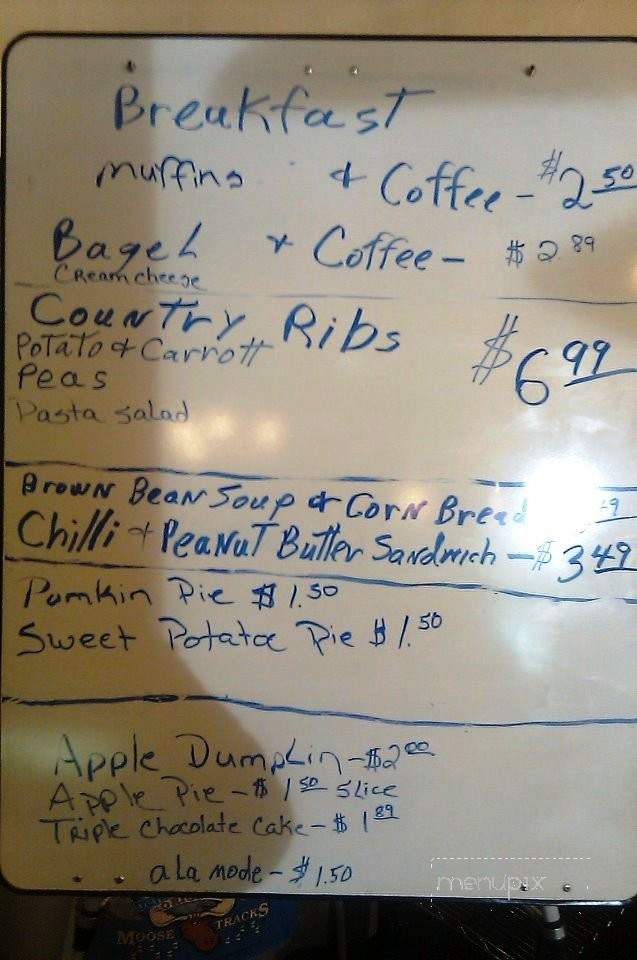 Breakfast
muffins & Coffee - $2 50
Bagel & Coffee - $2 89
Cream cheese
Country Ribs $6 99
Potato & Carrott
Peas
Pasta salad
Brown Bean Soup & Corn Bread
Chilli & Peanut Butter Sandwich - $3 49
Pumkin Pie $1.50
Sweet Potatoe Pie $1.50
Apple Dumplin - $2 00
Apple Pie - $1 50 Slice
Triple Chocolate Cake - $1 89
a La mode - $1.50
menupix
MOOSE TRACKS